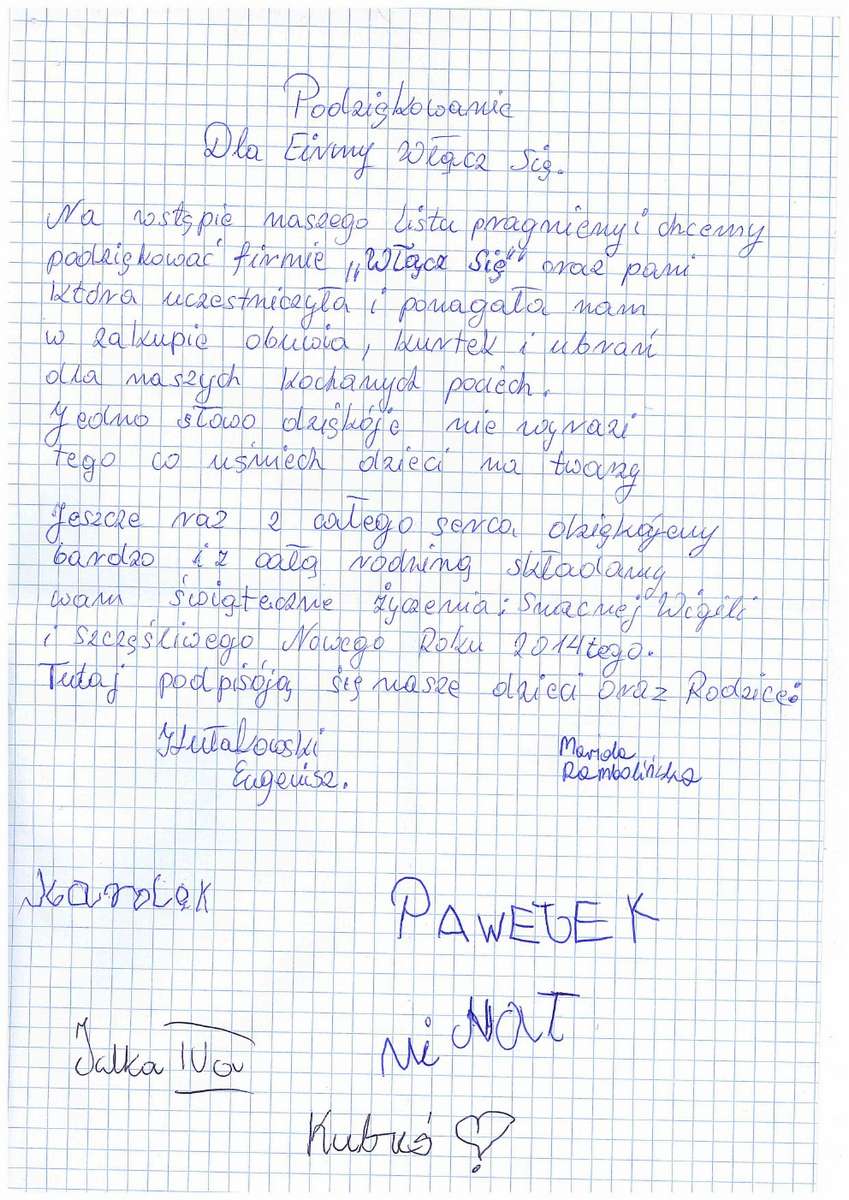 Podziękowanie
Dla Firmy Włącz Się.
Na wstępie naszego listu pragniemy i chcemy
podziękować firmie „Włącz Się" oraz pani
która uczestniczyła i pomagała nam
w zakupie obuwia, kurtek i ubrań
dla naszych kochanych pociech.
Jedno słowo dziękóje nie wyrazi
tego co uśmiech dzieci na twarzy
Jeszcze raz z całego serca, dziękójemy
bardzo i z całą rodziną składamy
wam świąteczne życzenia: Smacnej Wigili
i szczęśliwego Nowego Roku 2014tego.
Tutaj podpisóją się nasze dzieci oraz Rodzice:
Eugeniusz.
Mariola
Karolek
PAWEŁEK
Julka IVa
Kubuś